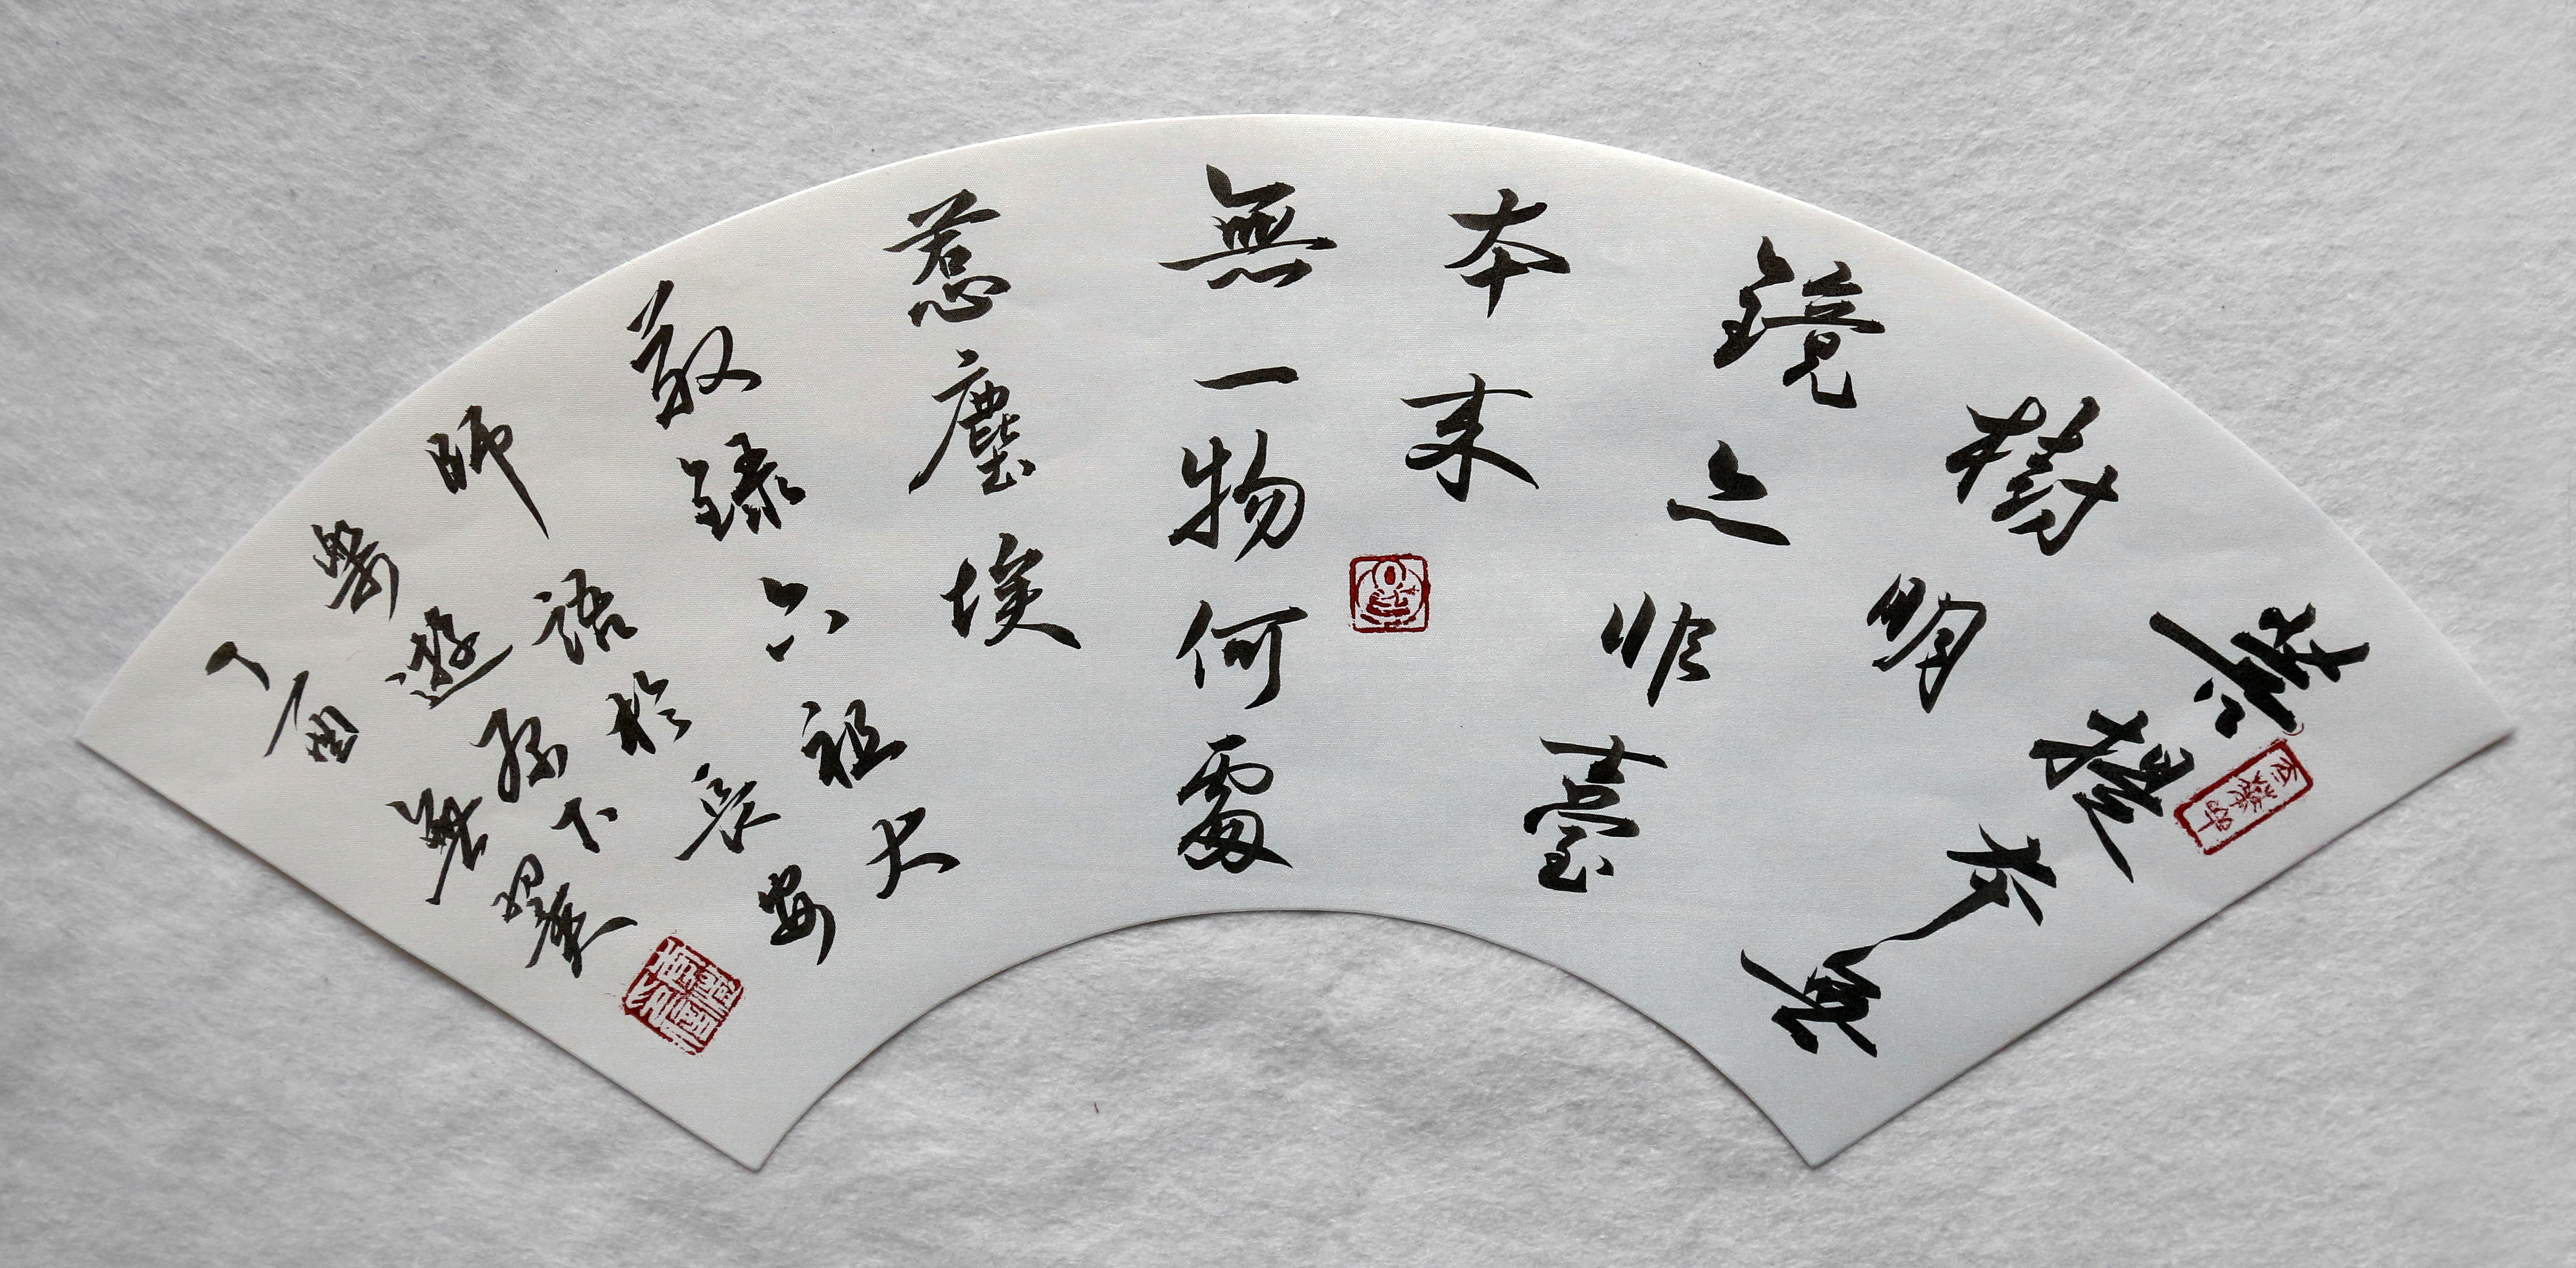 菩提本無
樹明
鏡亦非臺
本來
無一物何處
惹塵埃
敬錄六祖大
師語於長安
遊
丁酉